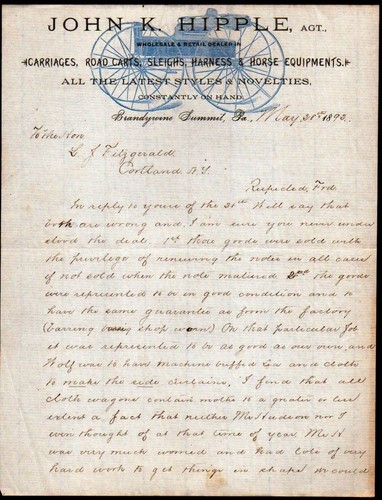 JOHN K. HIPPLE, AGT.,
WHOLESALE & RETAIL DEALER IN
CARRIAGES, ROAD CARTS, SLEIGHS, HARNESS & HORSE EQUIPMENTS.
ALL THE LATEST STYLES & NOVELTIES,
CONSTANTLY ON HAND.
Brandywine Summit, Pa., May 28th 1892
To the Hon
L. J. Fitzgerald.
Cortland N.Y.
Respected Frd
In reply to yours of the 21st Will say that
both are wrong and I am sure you never under
stood the deal. 1st these goods were sold with
the privilege of renewing the notes in all cases
if not sold when the note matured 2nd the goods
were represented to be in good condition and to
have the same guarantee as from the factory
(barring shop worn) On that particular Job
it was represented to be as good as our own and
Wolf was to have machine buffed and cloth
to make the side curtains. I find that all
cloth wagons contain moths to a greater or less
extent a fact that neither Mr Hudson nor I
even thought of at that time of year Mr H
was very much worried and had lots of very
hard work to get things in shape so could